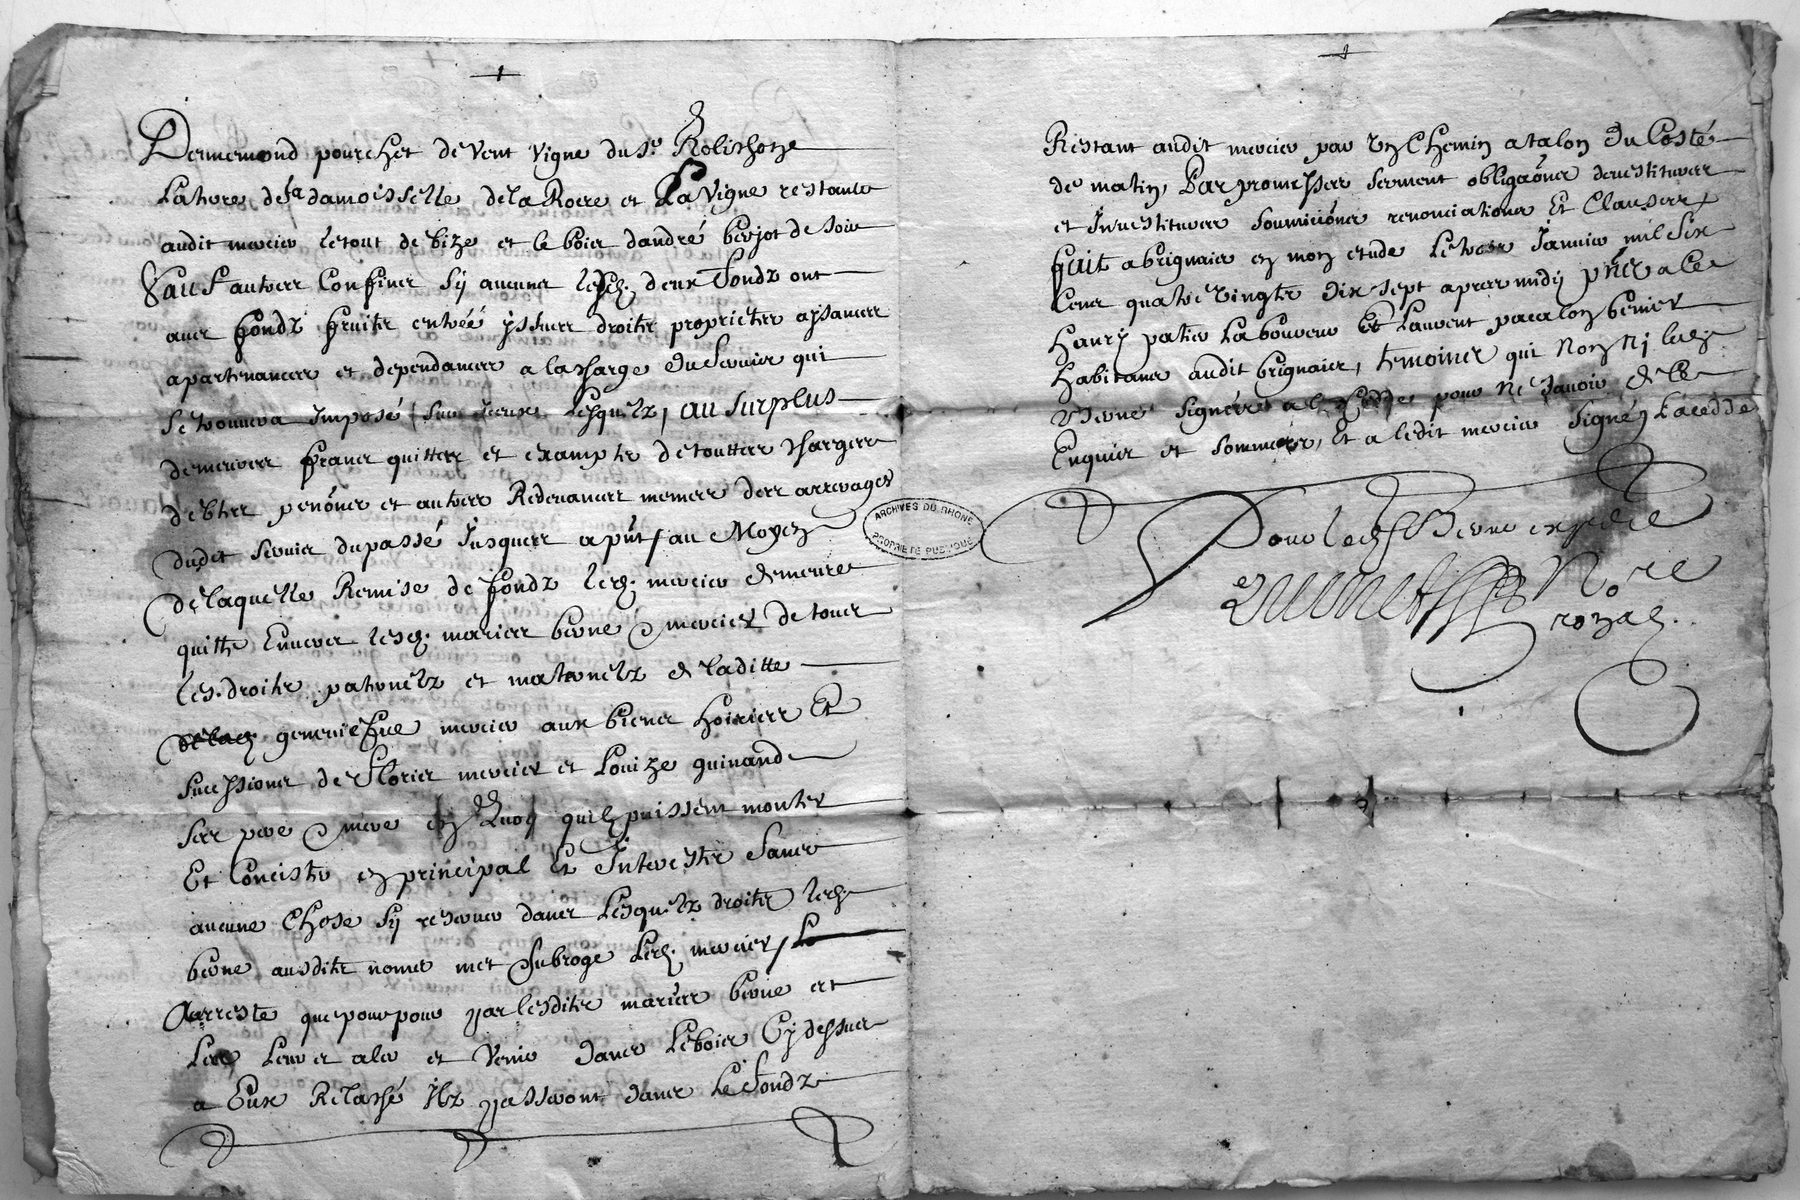 Dermemond pourchet de vent vigne du Sr Rolichon
La terre de la damoisselle de la Roere et La Vigne restante
audit mercier le tout de bize et le bois dandré berjot de soir
Sauf autres Confines sy aucunes lesd. deux fondz ont
avec fondz fruits entrée yssues droits proprietes aysances
apartenances et dependances a la charge du servis qui
se trouvera Imposé sur Iceux lesquelz, au surplus
demeurers francs quittes et exampts de touttes charges
debtes penõns et autres Redevances memes des arrerages
dudit servis du passé Jusques a pñt, au Moyen
de laquelle Remise de fondz lesd. mercier demeure
quitte Envers lesd. mariés berne & mercier de tous
les droits paternelz et maternelz de laditte
geneviefve mercier aux biens Hoiries Et
sucessions de Floris mercier et Louize guinand
ses pere & mere en Quoy quilz puissent monter
Et Consister en principal Et Interestz Sans
aucune Chose sy reserver dans Lesquelz droits lesd.
berne ausdits noms met & subroge Led. mercier,
Arresté que pour par lesdits mariés berne et
Les Leur et aler et Venir dans Le bois Cy dessus
a Eux Relaché Ilz passeront dans Le fondz
Restant audit mercier par Un Chemin a talon du Costé
de matin, Par promesses serment obligãons devestitures
et Investitures soumisions renonciations Et Clauses
fait a brignais en mon etude Le trois Janvier mil six
Cens quatre vingts dix sept apres midy pñts a Ce
Henry patier Laboureur Et Laurent pacalon benier
Habitans audit brignais, temoins qui Non Ny led.
berne signés a pour Ne Savoir de Ce
Enquis et sommés, Et a ledit mercier signé a La cedde
Pour led. Berne expedié
Nore
royal.
ARCHIVES DU RHONE
PROPRIETE PUBLIQUE